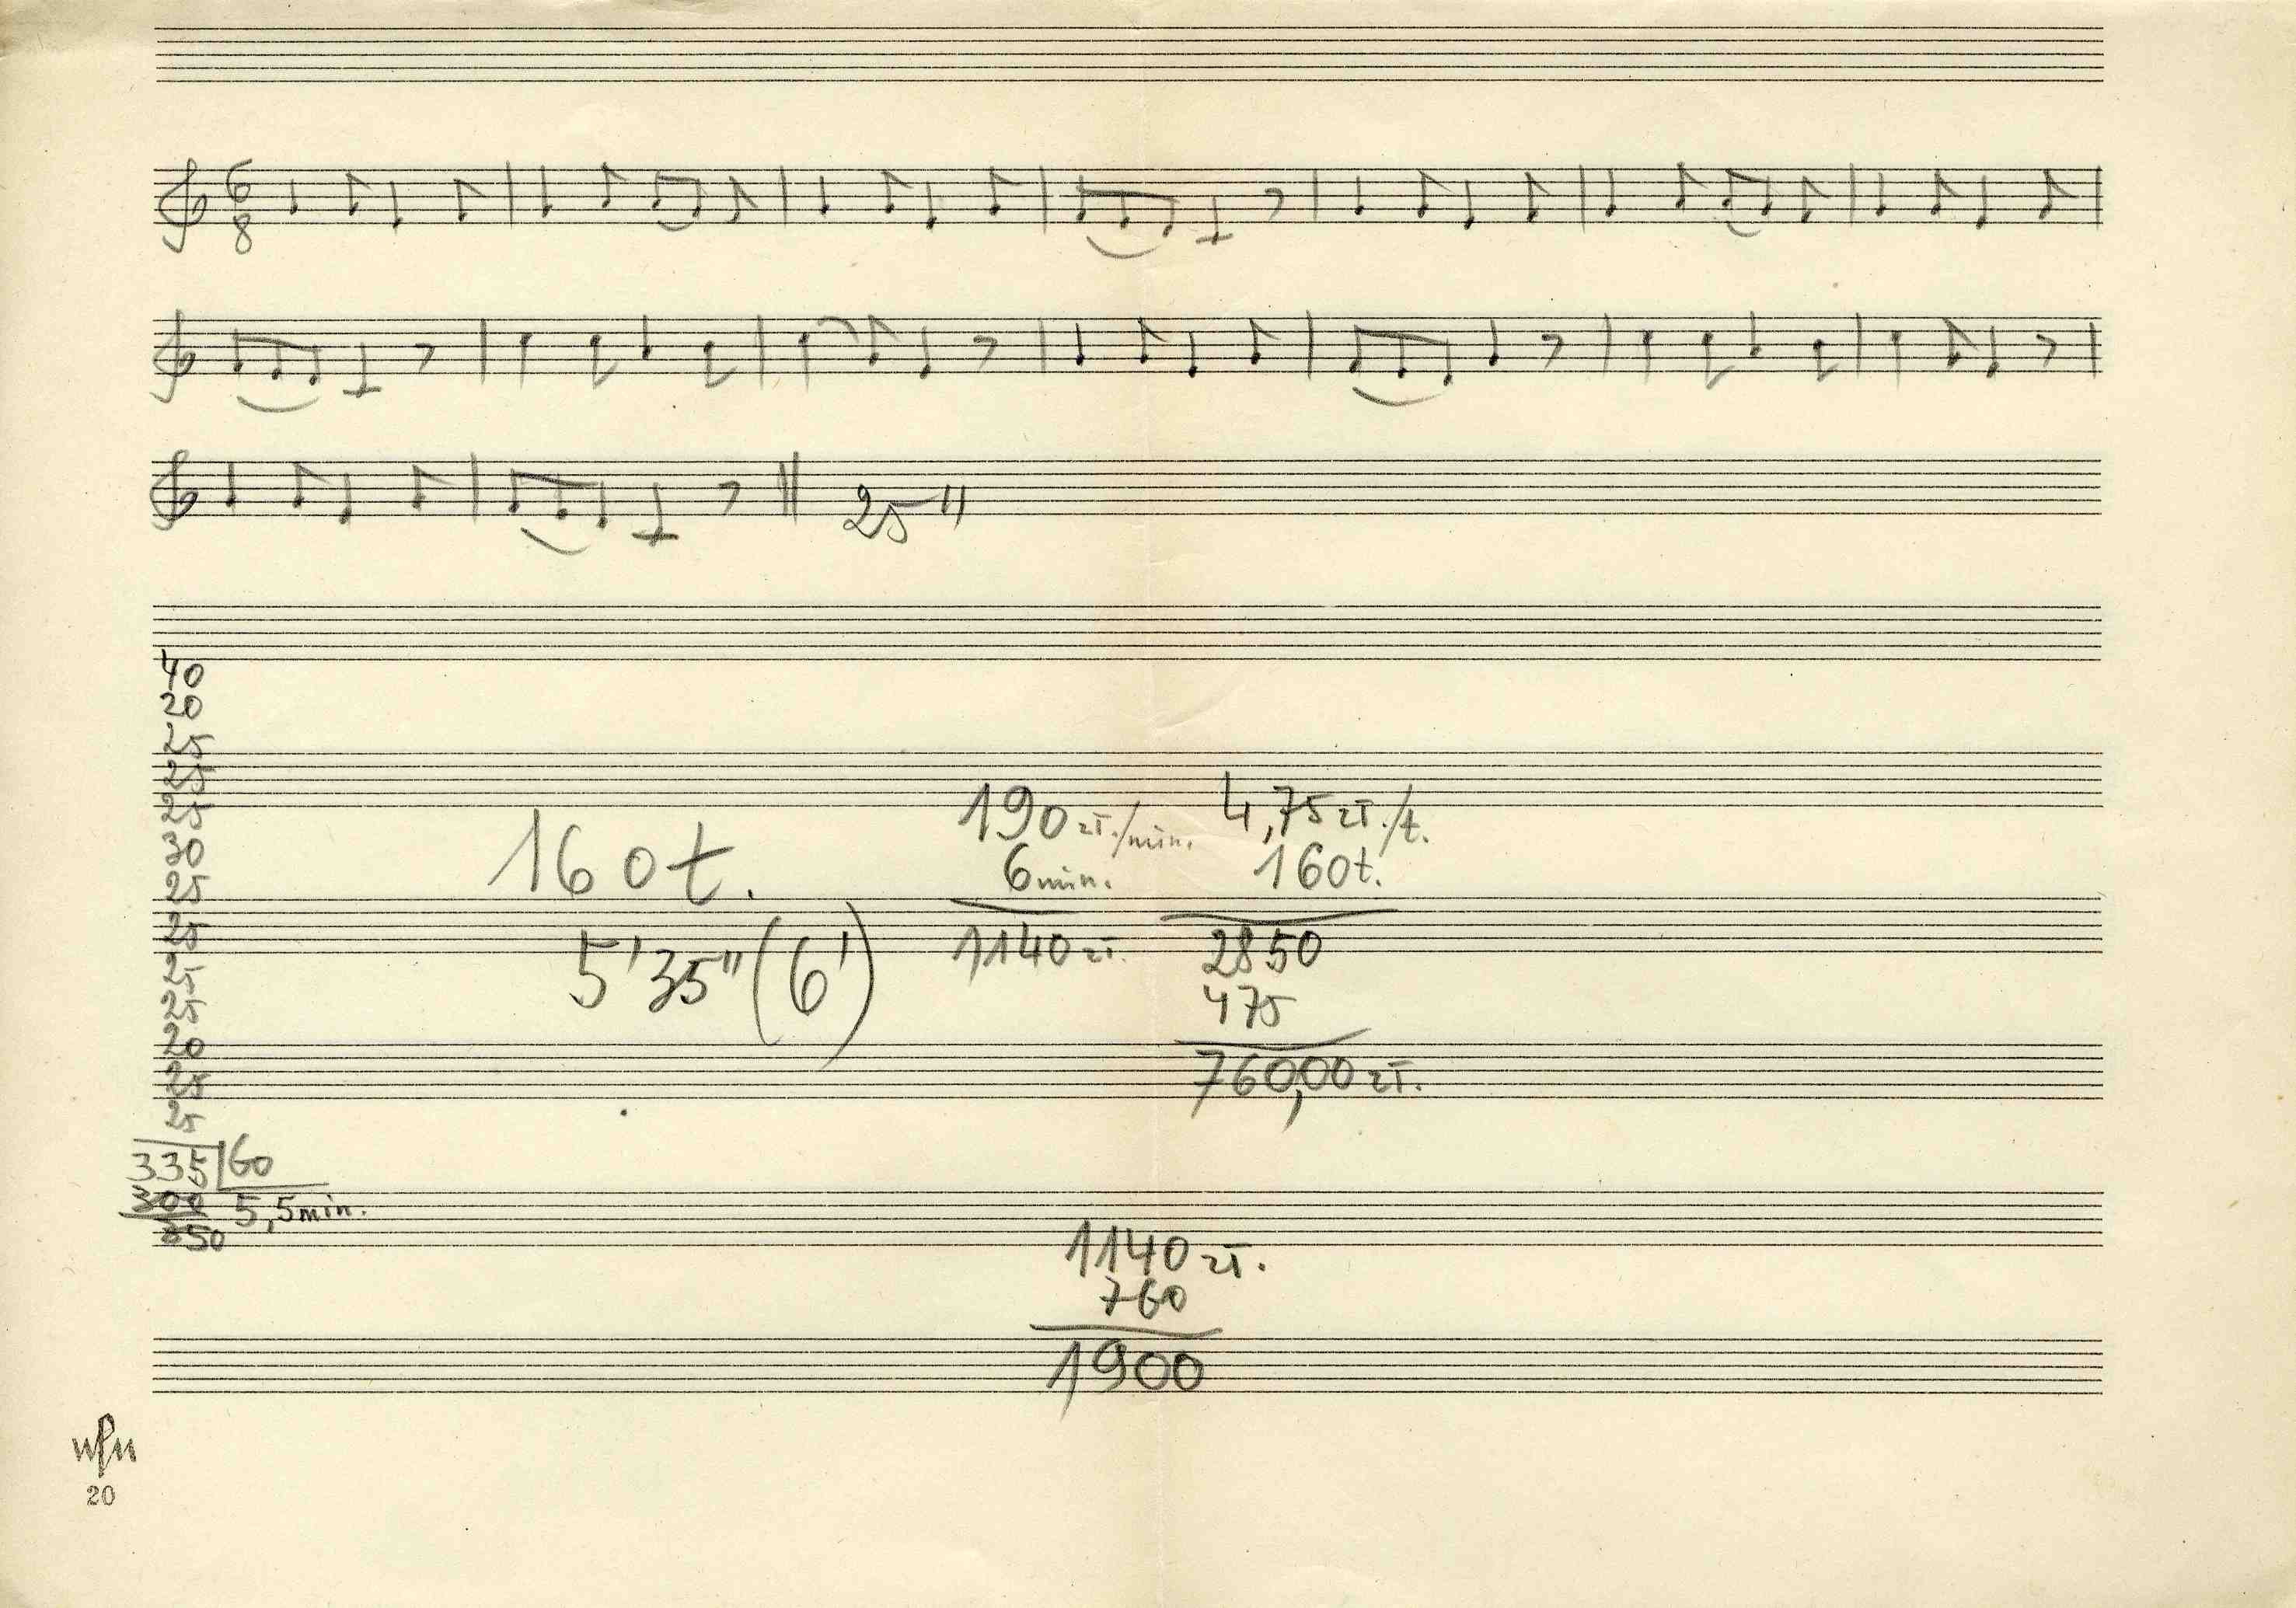 6
8
25"
40
20
25
25
25
30
25
25
25
25
20
25
25
335 60
300 5,5 min.
350
160 t.
5'35" (6')
190 zł./min.
6 min.
1140 zł.
4,75 zł./t.
160 t.
2850
475
760,00 zł.
1140 zł.
760
1900
20